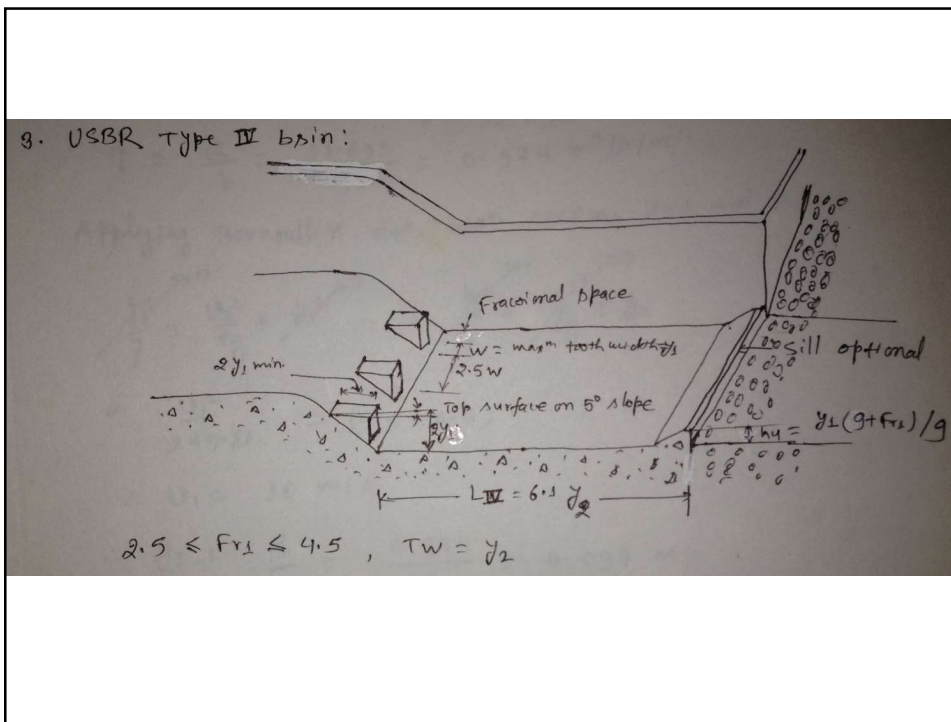 3. USBR Type IV bsin:
Fracoimal space
W = maxᵐ tooth width = y1
2.5w
2y1 min.
Top surface on 5° slope
2y1
sill optional
h4 = y1(9+Fr1)/9
LIV = 6.1 y2
2.5 ≤ Fr1 ≤ 4.5 , TW = y2